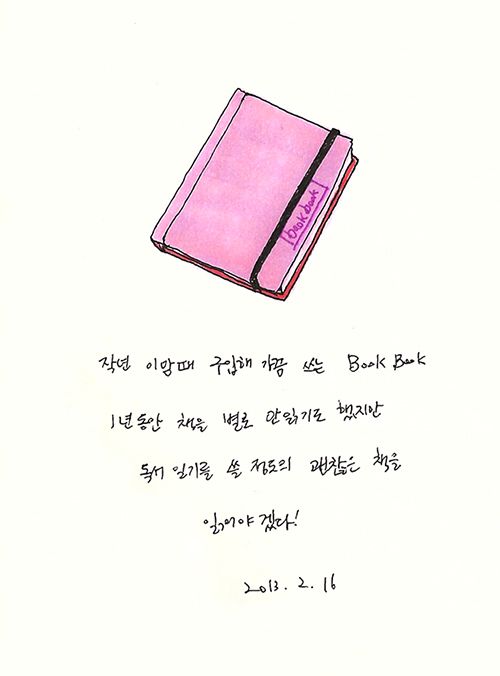 bookbook
작년 이맘때 구입해 가끔 쓰는 Book Book
1년동안 책을 별로 안읽기도 했지만
독서 일기를 쓸 정도의 괜찮은 책을
읽어야겠다!
2013. 2. 16